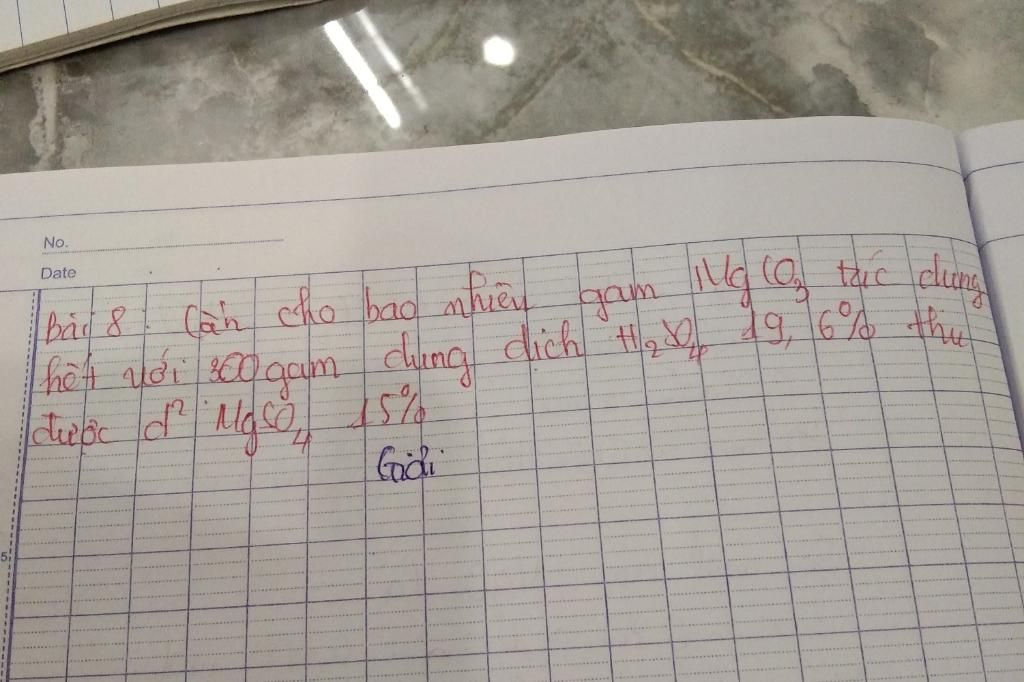 No.
Date
Bài 8: Cần cho bao nhiêu gam MgCO3 tác dụng
hết với 300 gam dung dịch H2SO4 19,6% thu
được d² MgSO4 15%
Giải
5